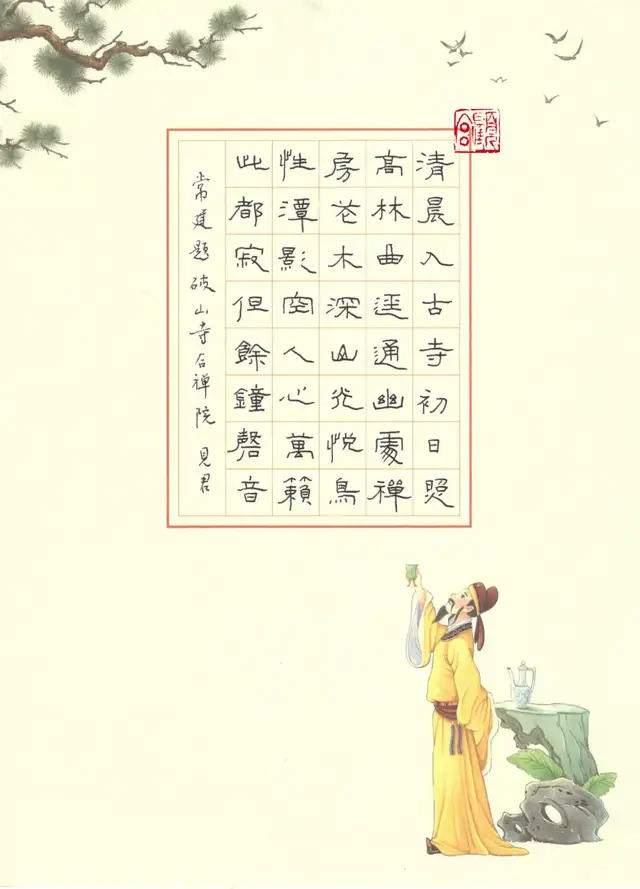 清晨入古寺初日照
高林曲逕通幽處禪
房花木深山光悅鳥
性潭影空人心萬籟
此都寂但餘鐘磬音
常建題破山寺后禅院 見君